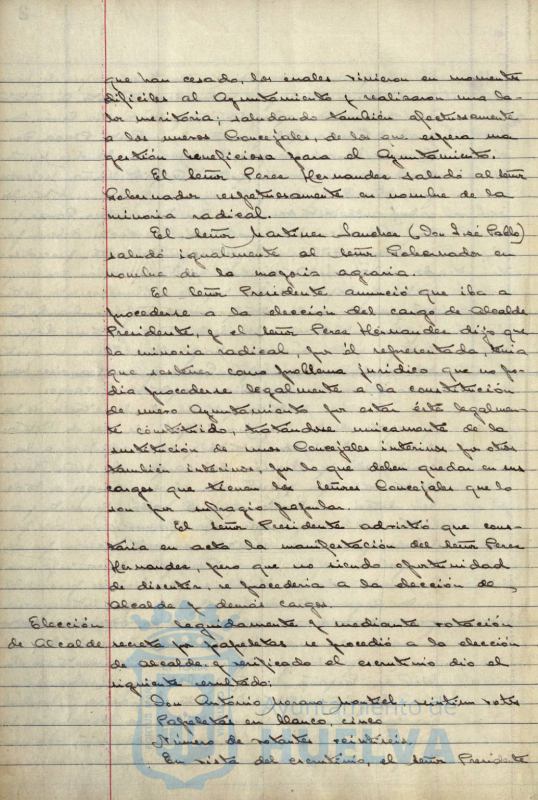 que han cesado, los cuales vinieron en momentos
dificiles al Ayuntamiento y realizaron una la-
bor meritoria; saludando también afectuosamente
a los nuevos Concejales, de los que espera una
gestión beneficiosa para el Ayuntamiento.
El Señor Perez Hernandez saludó al Señor
Gobernador respetuosamente en nombre de la
minoria radical.
El Señor Martinez Sanchez (Don José Pablo)
saludó igualmente al Señor Gobernador en
nombre de la mayoria agraria.
El Señor Presidente anunció que iba a
procederse a la elección del cargo de Alcalde
Presidente, y el Señor Perez Hernandez dijo que
la minoria radical, por él representada, tenia
que sostener como problema juridico que no po-
dia procederse legalmente a la constitución
de nuevo Ayuntamiento por estar éste legalmen-
te constituido, tratandose unicamente de la
sustitución de unos Concejales interinos por otros
también interinos, por lo que deben quedar en sus
cargos que tienen los Señores Concejales que lo
son por sufragio popular.
El Señor Presidente advirtió que cons-
taria en acta la manifestación del Señor Perez
Hernandez, pero que no siendo oportunidad
de discutir, se procederia a la elección de
Alcalde y demás cargos.
Elección
de Alcalde
Seguidamente y mediante votación
secreta por papeletas se procedió a la elección
de Alcalde y verificado el escrutinio dio el
siguiente resultado:
Don Antonio Moreno Montiel veintiun votos
Papeletas en blanco, cinco
Número de votantes veintiseis.
En vista del escrutinio, el Señor Presidente
Ayuntamiento de
HUELVA